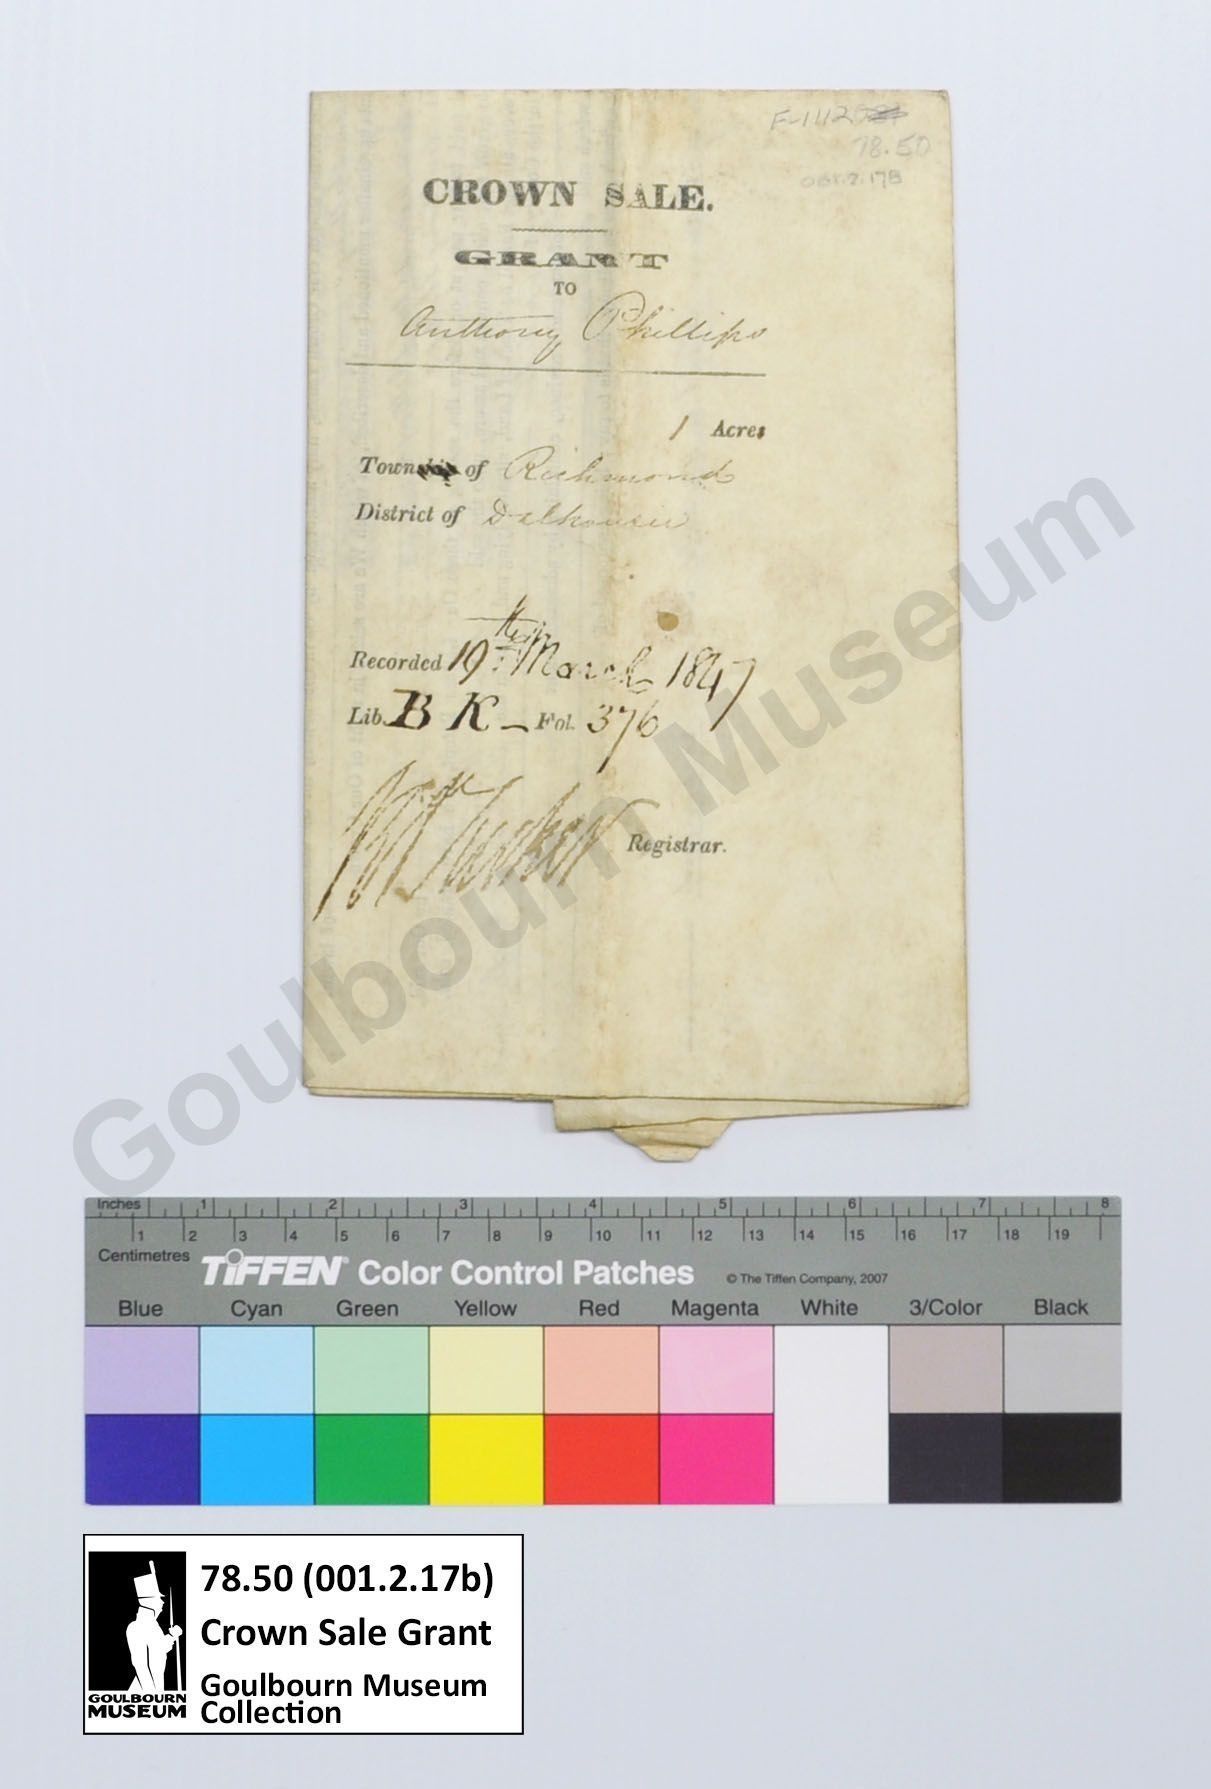 F-1112
78.50
001.2.17B
CROWN SALE.
GRANT
TO
Anthony Phillips
1 Acres
Town of Richmond
District of Dalhousie
Recorded 19th March 1847
Lib. B K - Fol. 376
Registrar.
Goulbourn Museum
Inches 1 2 3 4 5 6 7 8
1 2 3 4 5 6 7 8 9 10 11 12 13 14 15 16 17 18 19
Centimetres
TIFFEN Color Control Patches © The Tiffen Company, 2007
Blue Cyan Green Yellow Red Magenta White 3/Color Black
78.50 (001.2.17b)
Crown Sale Grant
Goulbourn Museum
Collection
GOULBOURN
MUSEUM